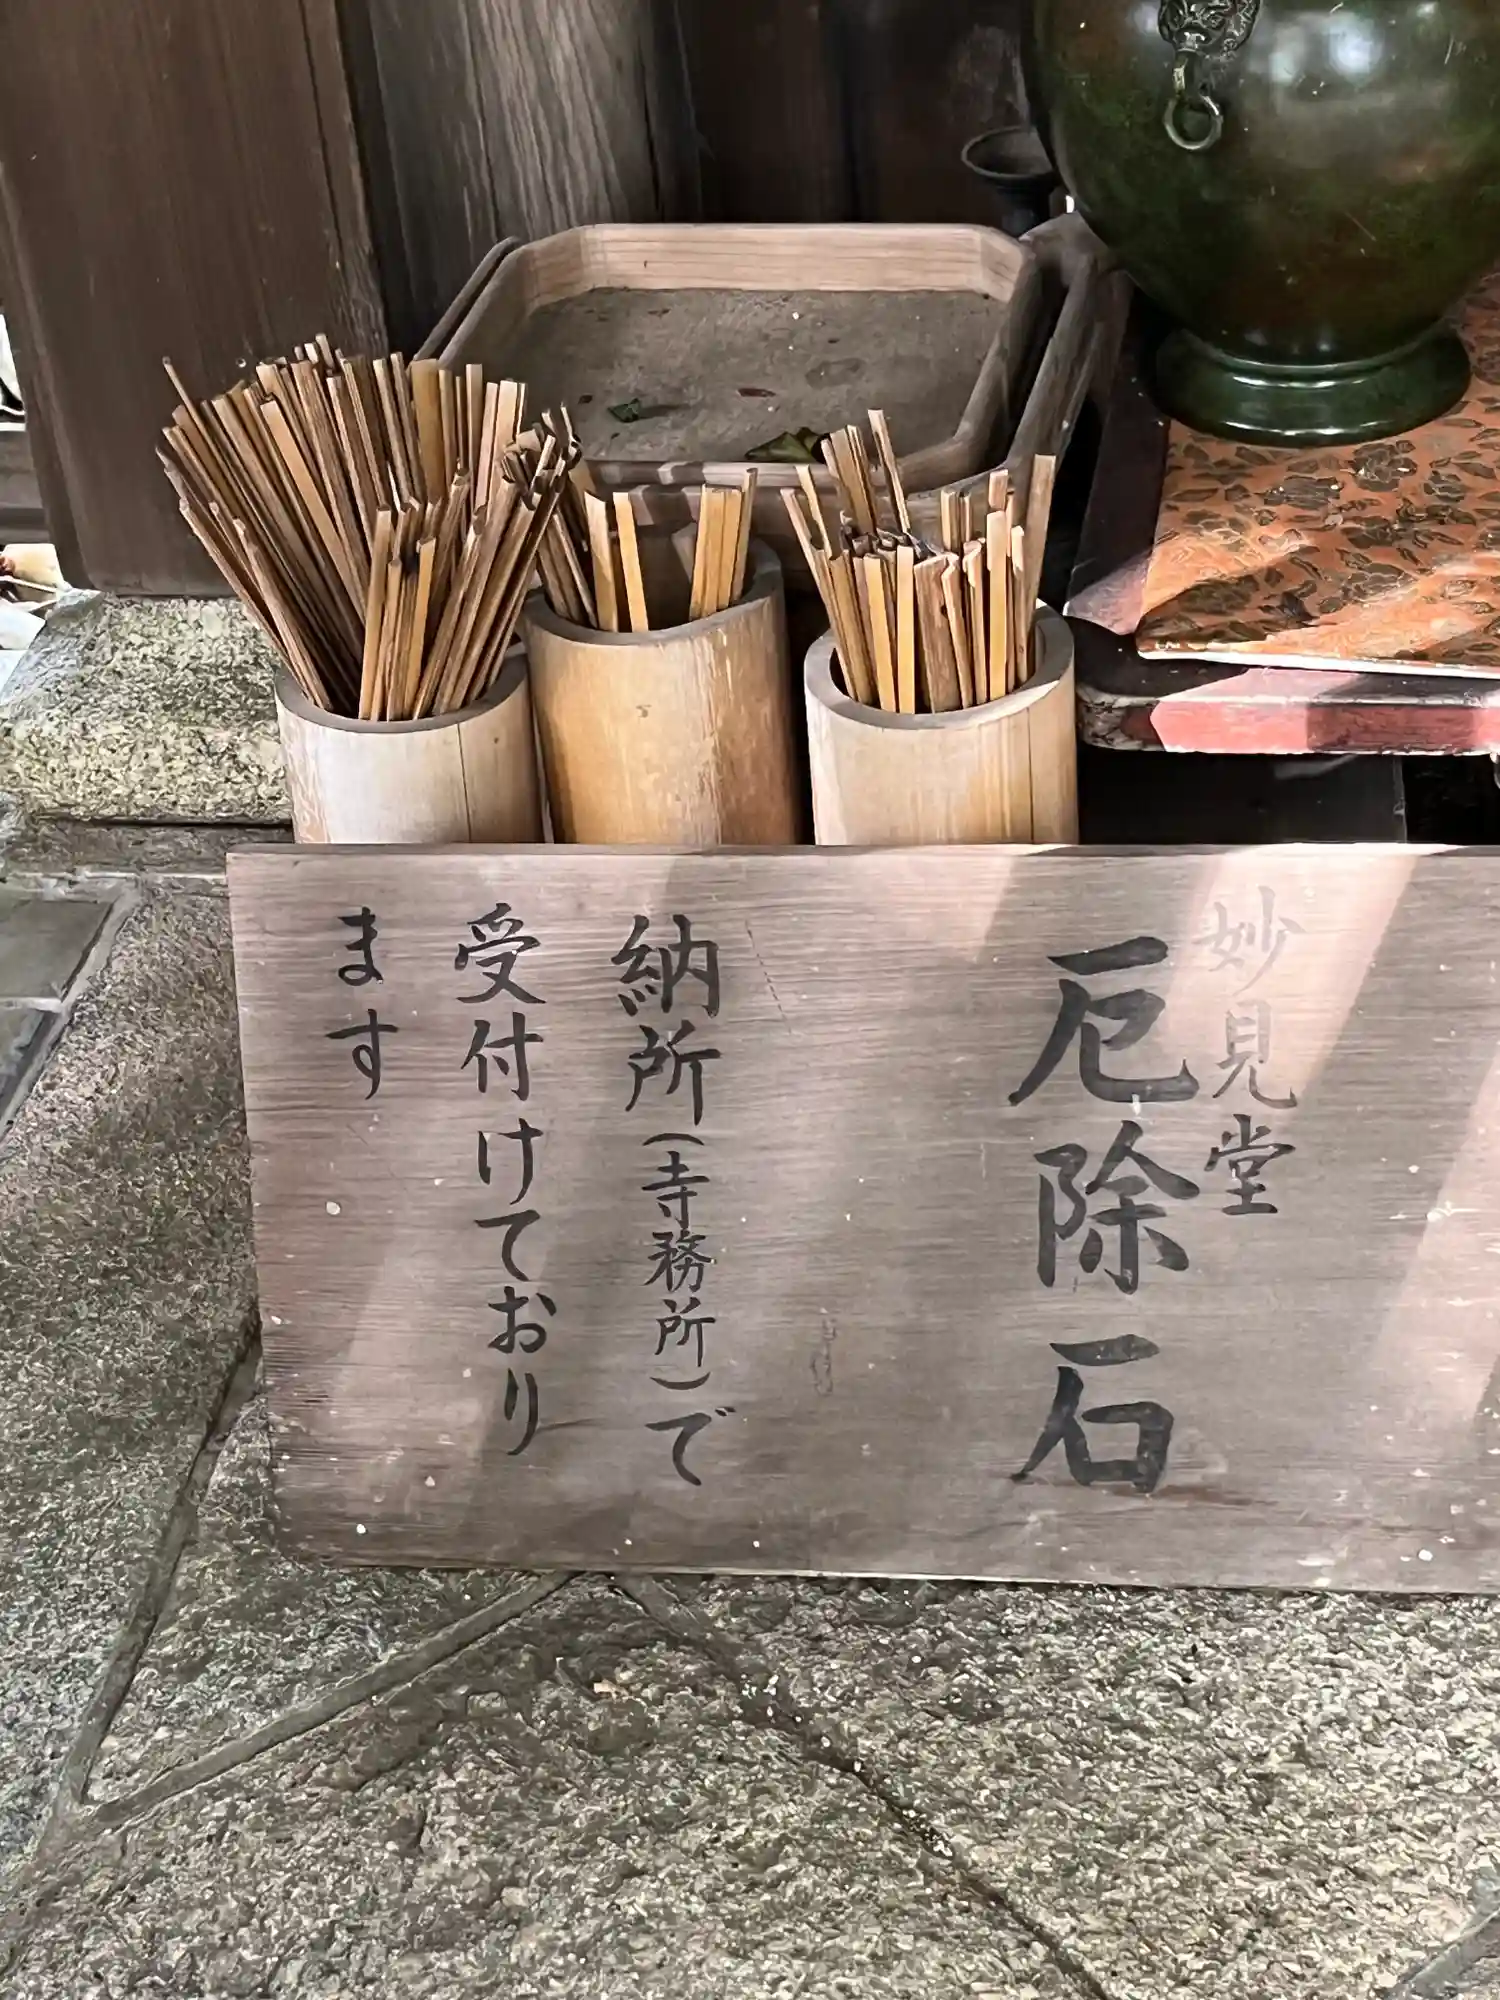 妙見堂
厄除石
納所(寺務所)で
受付けており
ます